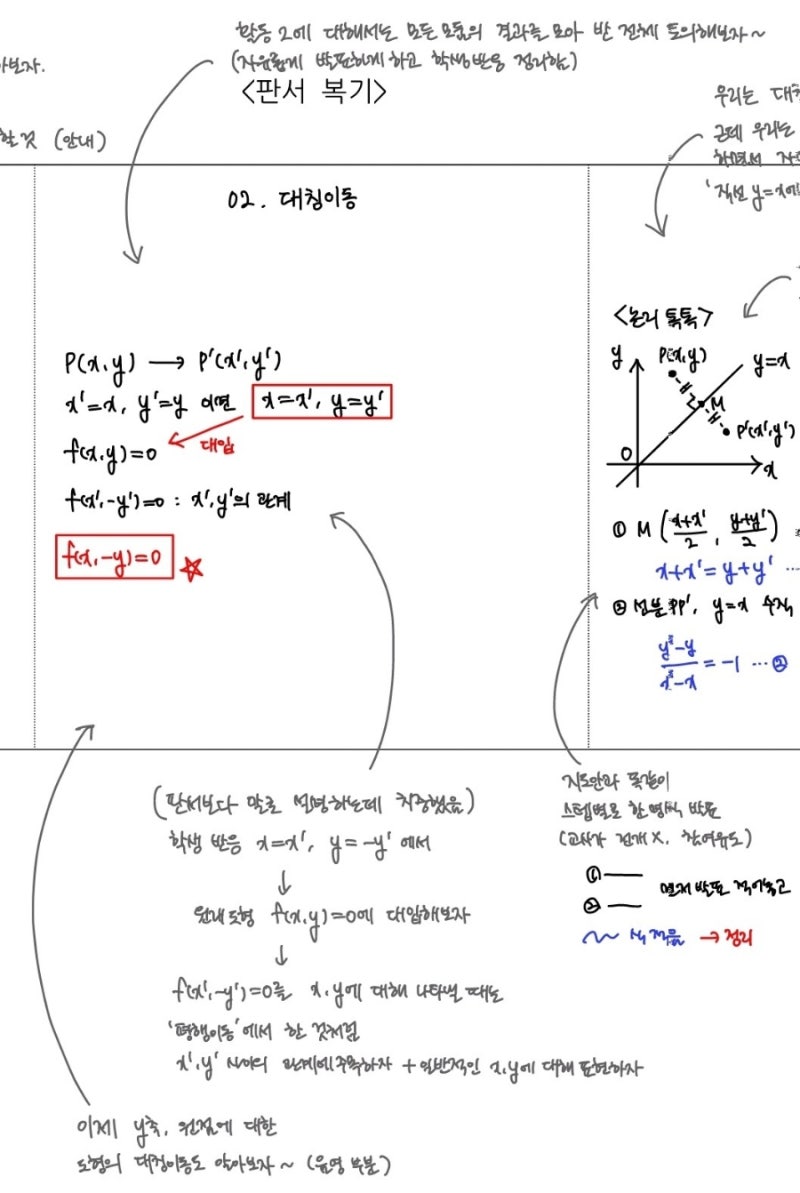 활동 2에 대해서는 모든 모둠의 결과를 모아 반 전체 토의해보자~
(자유롭게 발표하게 하고 학생반응 정리함)
아보자.
<판서 복기>
할 것 (안내)
우리는 대칭
근데 우리는
하면서
'직선 y=x에
02. 대칭이동
P(x,y) → P'(x',y')
x'=x, y'=y 이면 x=x', y=y'
f(x,y)=0 대입
f(x',-y')=0 : x',y'의 관계
f(x,-y)=0 ☆
<논리 톡톡>
y P(x,y) y=x
M
P'(x',y')
O x
① M (x+x'/2, y+y'/2)
x+x'=y+y' ...
② 선분 PP', y=x 수직
y'-y/x'-x = -1 ...②
(판서보다 말로 설명하는데 치중했음)
학생 반응 x=x', y=-y' 에서
↓
원래도형 f(x,y)=0에 대입해보자
↓
f(x',-y')=0을 x,y에 대해 나타낼 때도
'평행이동'에서 한 것처럼
x',y' 사이의 관계에 주목하자 + 일반적인 x,y에 대해 표현하자
이제 y축, 원점에 대한
도형의 대칭이동도 알아보자~ (음영 부분)
지도안과 똑같이
스텝별로 한 명씩 발표
(교사가 전개 X, 참여유도)
①―
②― 먼저 발표 적어놓고
식 적음 → 정리